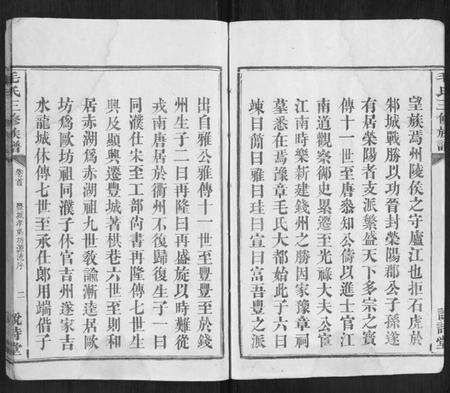 望族焉州陵侯之守廬江也拒石虎於
邾城戰勝以功晉封榮陽郡公子孫遂
有居榮陽者支派繁盛天下多宗之賓
傳十一世至唐㤗知公儔以進士官江
南道觀察御史累遷至光祿大夫公官
江南時樂新建錢州之勝因家豫章祠
墓悉在焉豫章毛氏大都始此子六曰
竦曰蕳曰雅曰珪曰宣曰富吾豐之派
出自雅公雅傳十一世至豐豐至於錢
州生子二曰再隆曰再盛旋以時難從
戎南唐居於衢州不復歸復生子一曰
同濮仕宋至工部尚書再隆傳七世生
興及顯興遷豐城著棋巷六世至則和
居赤湖爲赤湖祖九世敎諭漸逵居歐
坊爲歐坊祖同濮子休官吉州遂家吉
水龍城休傳七世至承仕郎用端偕子
毛氏三修族譜
卷首
二
說詩堂
毛氏三修族譜
說詩堂